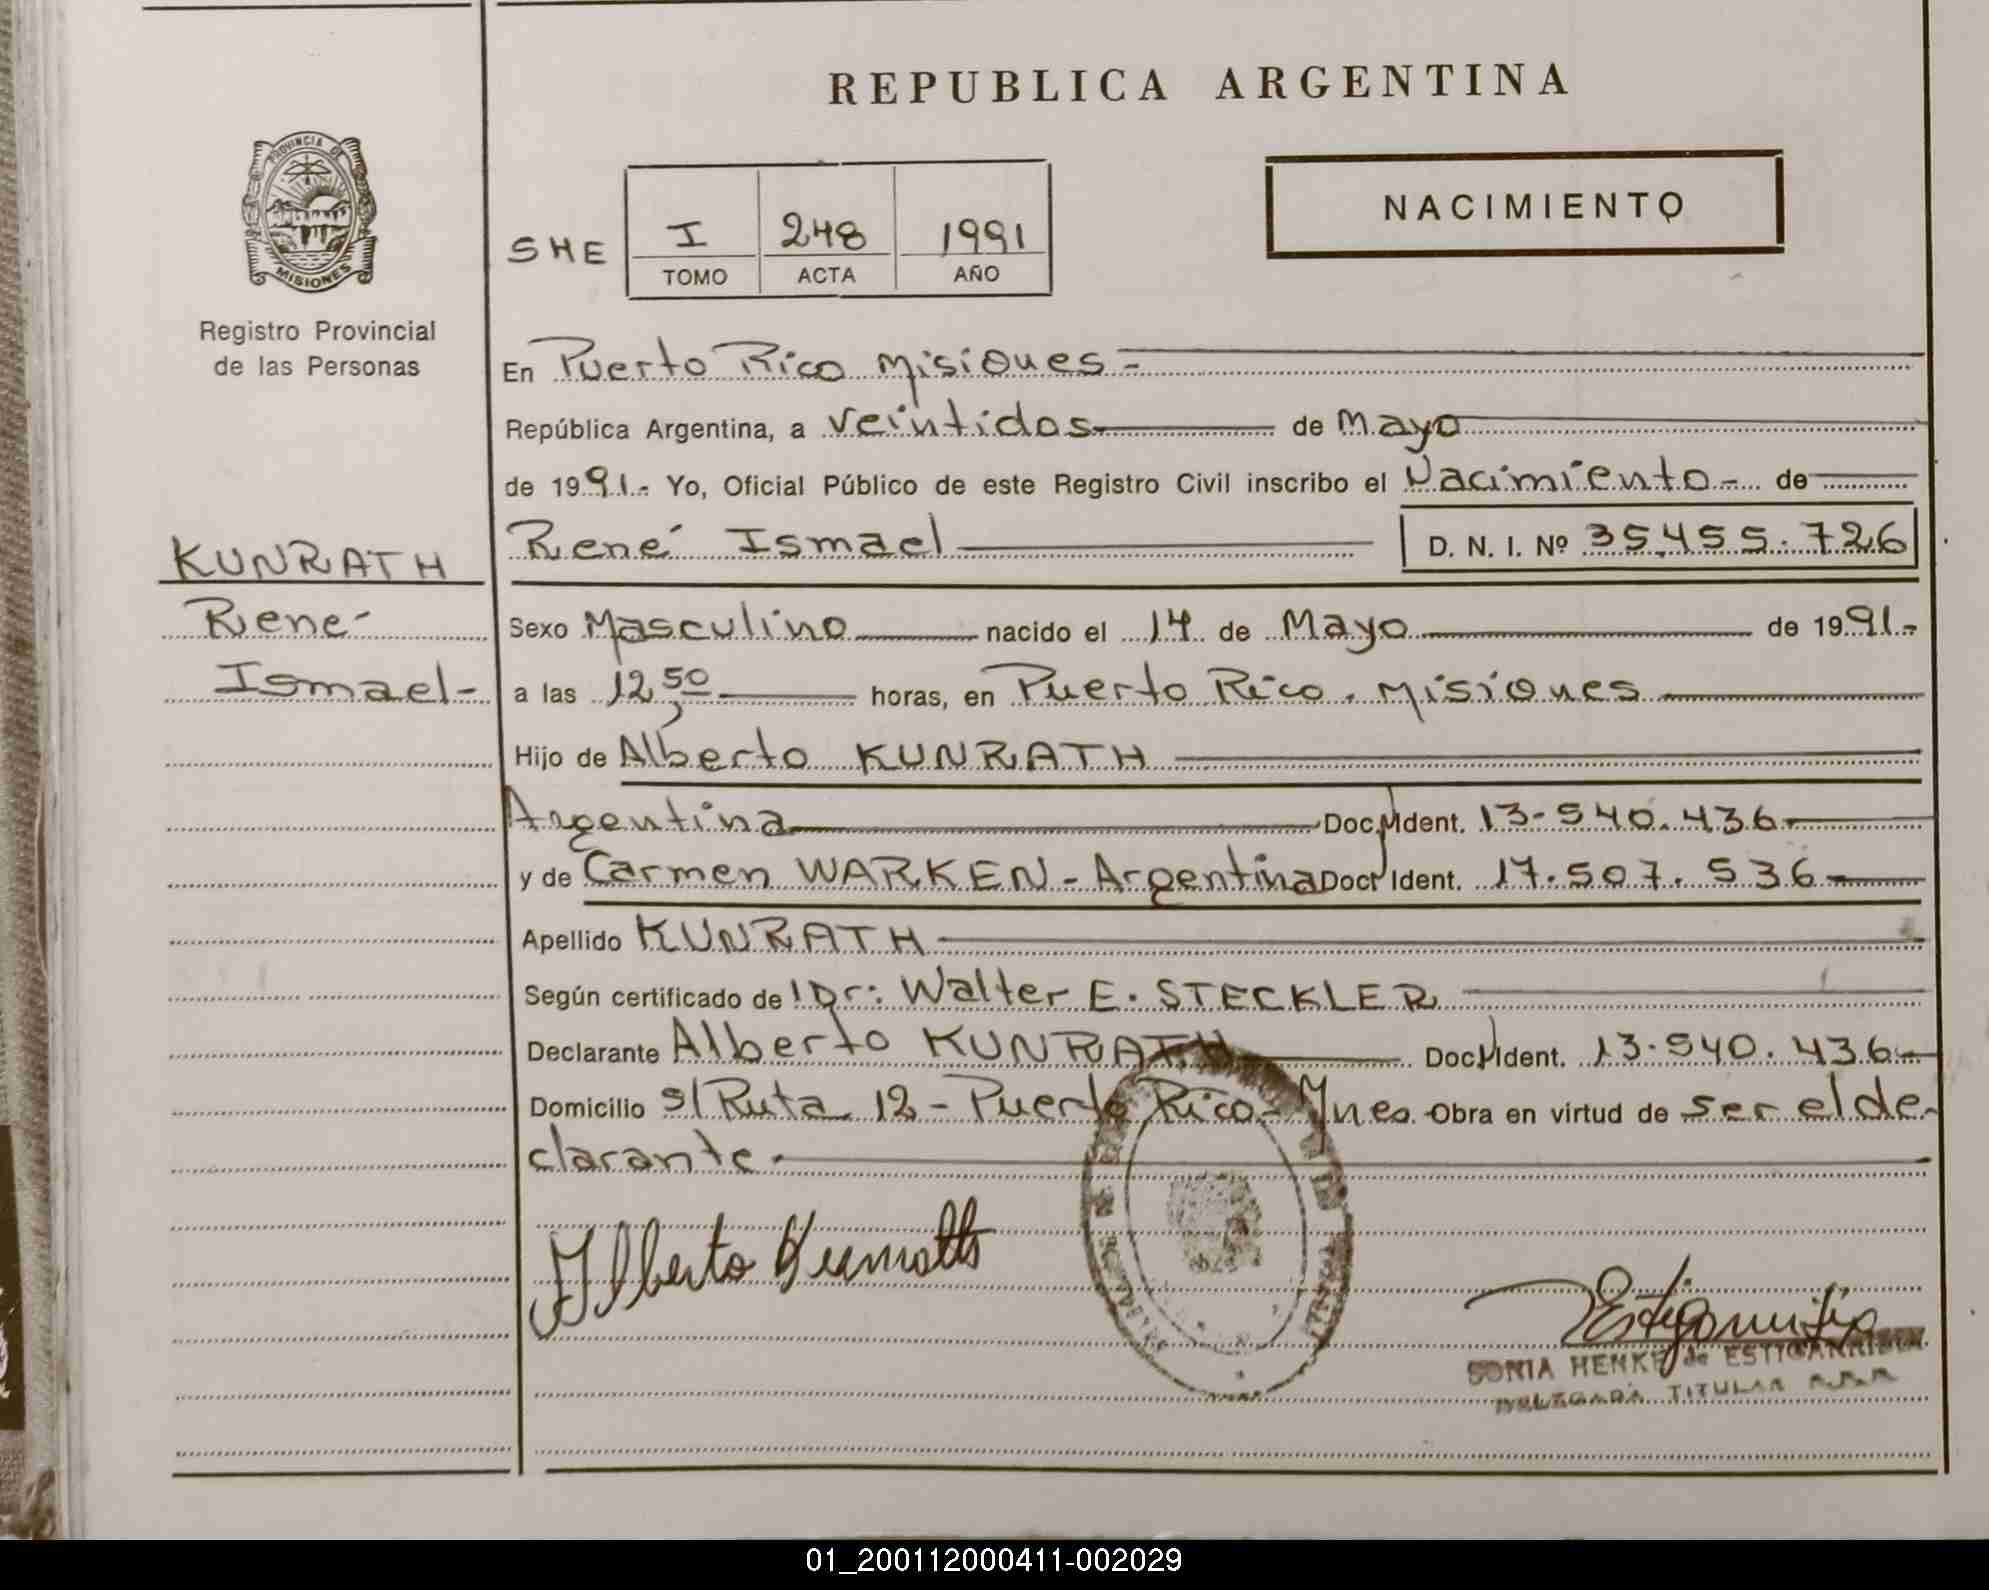 REPUBLICA ARGENTINA
PROVINCIA DE
MISIONES
Registro Provincial
de las Personas
NACIMIENTO
SHE I 248 1991
TOMO ACTA AÑO
En Puerto Rico Misiones -
República Argentina, a veintidos de Mayo
de 1991.- Yo, Oficial Público de este Registro Civil inscribo el Nacimiento - de
René Ismael D. N. I. Nº 35.455.726
KUNRATH
René
Ismael-
Sexo Masculino nacido el 14 de Mayo de 1991.-
a las 12,50 horas, en Puerto Rico. Misiones
Hijo de Alberto KUNRATH
Argentina Doc. Ident. 13.540.436
y de Carmen WARKEN - Argentina Doc. Ident. 17.507.536
Apellido KUNRATH
Según certificado de Dr: Walter E. STECKLER
Declarante Alberto KUNRATH Doc. Ident. 13.540.436
Domicilio s/ Ruta 12 - Puerto Rico - Mnes. Obra en virtud de ser el de-
clarante.
Alberto Kunrath
SONIA HENKE de ESTIGARRIBIA
DELEGADA TITULAR
01_200112000411-002029